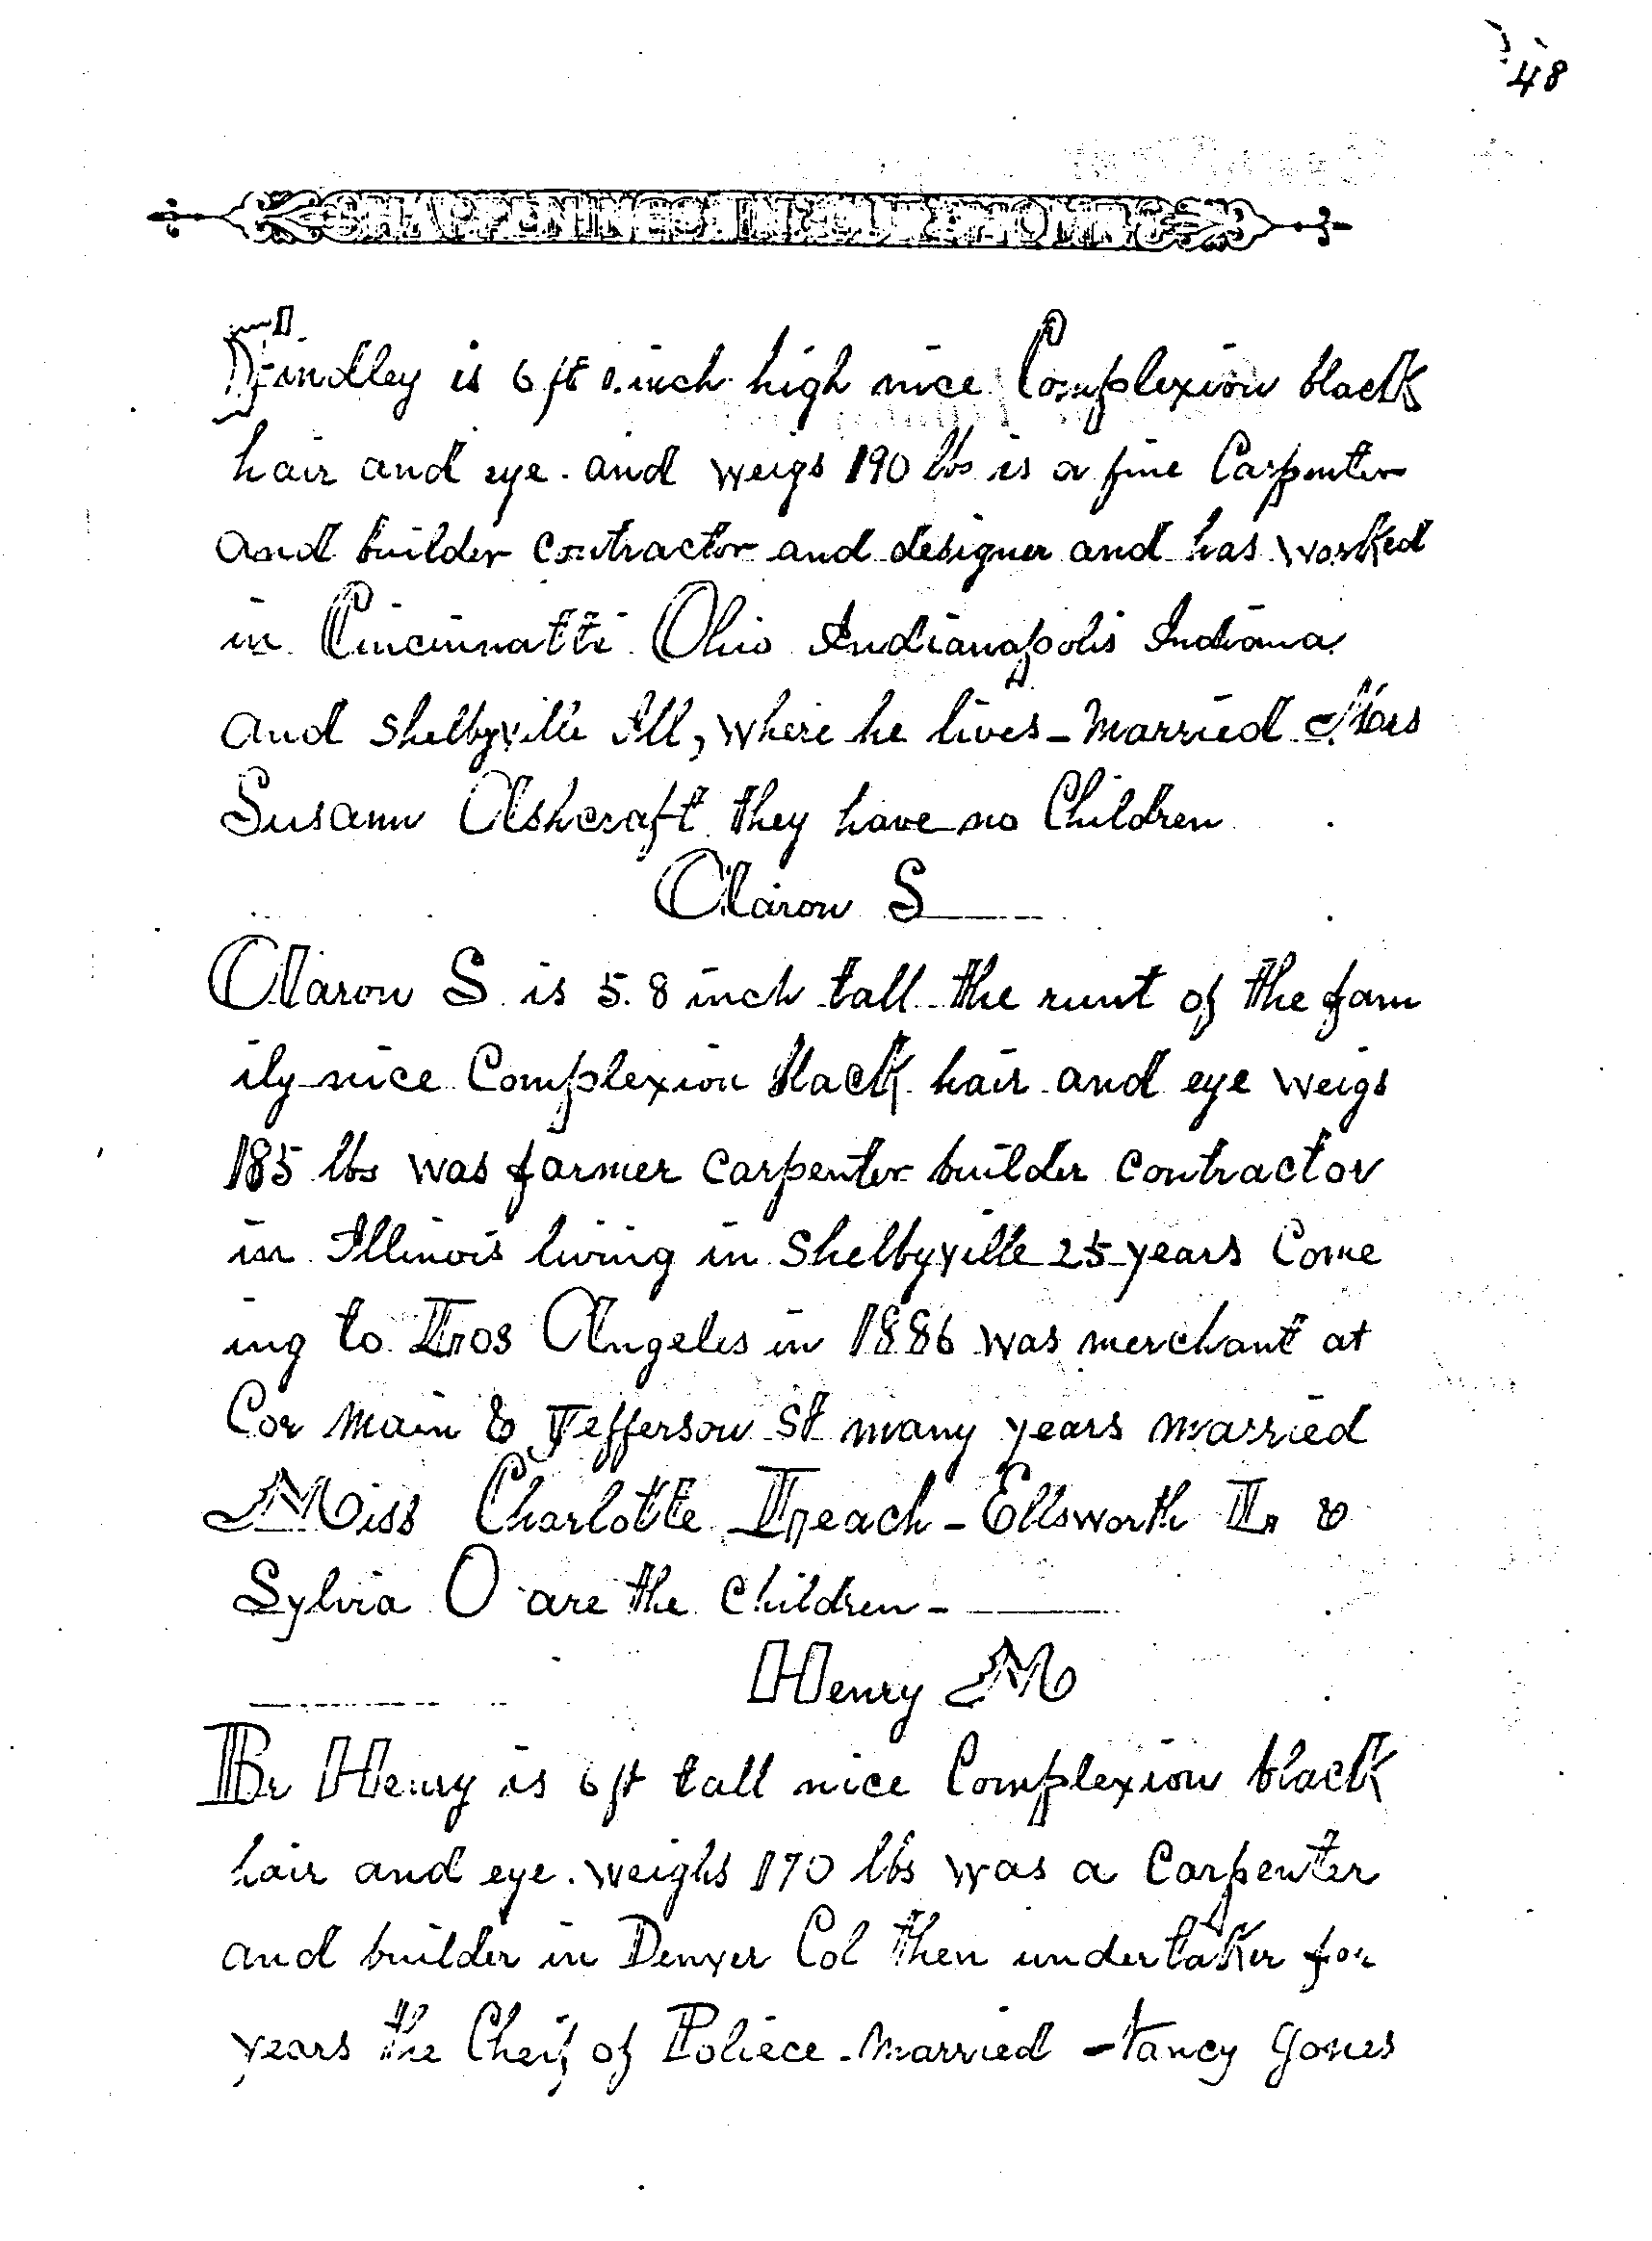 48
HAPPENINGS IN OUR HOME
Findley is 6 ft 1. inch high nice Complexion black
hair and eye. and weigs 190 lbs is a fine Carpenter
and builder contractor and designer and has worked
in Cincinnatti Ohio Indianapolis Indiana
and Shelbyville Ill, where he lives - married Miss
Susann Ashcraft they have no Children
Aaron S
Aaron S is 5. 8 inch tall the runt of the fam
ily nice Complexion black hair and eye weigs
185 lbs was farmer carpenter builder contractor
in Illinois living in Shelbyville 25 years Come
ing to Los Angeles in 1886 was merchant at
Cor Main & Jefferson St many years married
Miss Charlotte Leach - Ellsworth L &
Sylvia O are the Children -
Henry M
Br Henry is 6 ft tall nice Complexion black
hair and eye. weighs 170 lbs was a Carpenter
and builder in Denver Col then undertaker for
years the Cheif of Poliece. married - Nancy Jones